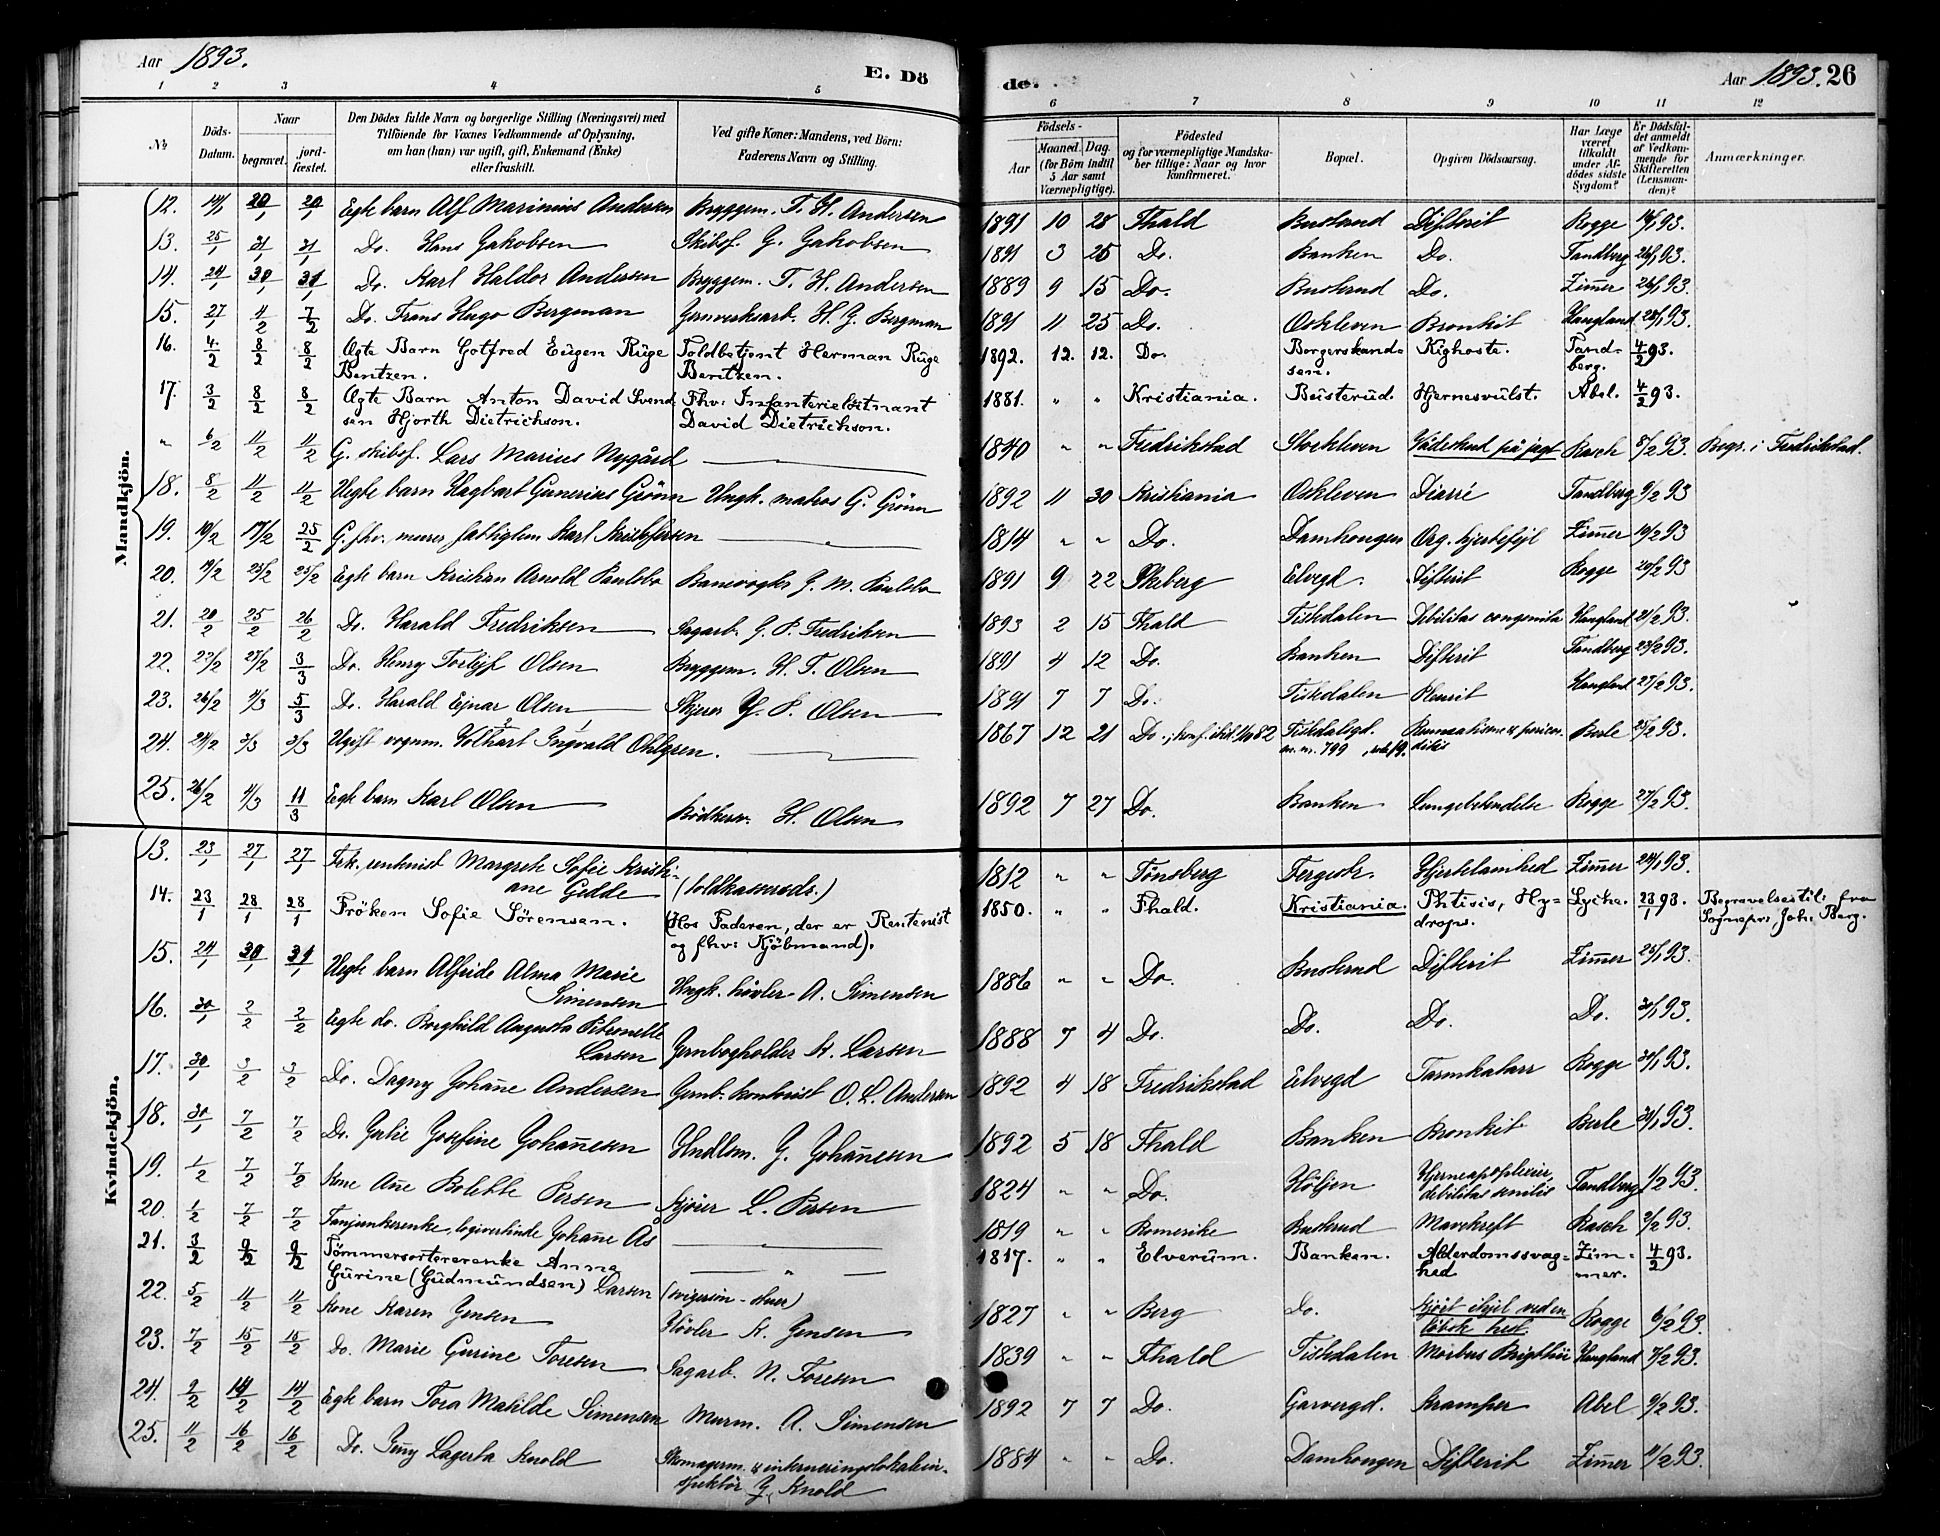 Aar 1893. E. Dö de. Aar 1893. 26
1 2 3 4 5 6 7 8 9 10 11 12
№ Döds-Datum. Naar begravet. jord-fæstet. Den Dödes fulde Navn og borgerlige Stilling (Næringsvei) med Tilföiende for Voxnes Vedkommende af Oplysning, om han (hun) var ugift, gift, Enkemand (Enke) eller fraskilt. Ved gifte Koner: Mandens, ved Börn: Faderens Navn og Stilling. Födsels- Aar Maaned. Dag. (for Börn indtil 5 Aar samt Værnepligtige). Födested og for værnepligtige Mandskaber tillige: Naar og hvor konfirmeret. Bopæl. Opgiven Dödsaarsag. Har Læge været tilkaldt under Afdödes sidste Sygdom? Er Dödsfaldet anmeldt af Vedkommende for Skifteretten (Lensmanden)? Anmærkninger.
Mandkjön.
12. 14/1 20/1 20/1 Egte barn Alf Marinius Andersen Bryggem. T. H. Andersen 1891 10 28 Fhald Buskrud Difterit Rogge 16/1 93.
13. 25/1 31/1 31/1 Do. Hans Jakobsen Skibsf. G. Jakobsen 1891 3 25 Do. Banken Do. Tandberg 26/1 93.
14. 24/1 30/1 31/1 Do. Karl Haldor Andersen Bryggem. T. H. Andersen 1889 9 15 Do. Buskrud Do. Zimer 26/1 93.
15. 27/1 4/2 7/2 Do. Frans Hugo Bergman Jernverksarb. H. G. Bergman 1891 11 25 Do. Oskleven Bronkit Haugland 28/1 93.
16. 4/2 8/2 8/2 Ægte Barn Gotfred Eugen Rüge Bentzen. Toldbetjent Herman Rüge Bentzen. 1892. 12. 12. Do. Borgerskandsen. Kighoste. Tandberg. 4/2 93.
17. 3/2 8/2 8/2 Ægte Barn Anton David Svendsen Hjorth Dietrichson. Fhv: Infanterieløitnant David Dietrichson. 1881. " " Kristiania. Büsterud. Hjernesvulst. Abel. 4/2 93.
" 6/2 11/2 11/2 G. skibsf. Lars Marius Nygård 1840 " " Fredrikstad Stockleven Vådeskud på jagt Rasch 8/2 93. Begr. i Fredrikstad.
18. 8/2 11/2 11/2 Uegte barn Hagbart Gunerius Grönn Ungk. matros G. Grönn 1892 11 30 Kristiania Oskleven Diarré Tandberg 9/2 93
19. 10/2 17/2 25/2 G. fhv. murer fattiglem Karl Kristofersen 1814 " " Do. Damhougen Org. hjertefejl Zimer 10/2 93
20. 19/2 25/2 25/2 Egte barn Kristian Arnold Paulsbo Banevogter J. M. Paulsbo 1891 9 22 Skeberg Elvegd. Difterit Rogge 20/2 93
21. 20/2 25/2 26/2 Do. Harald Fredriksen Sagarb. G. P. Fredriksen 1893 2 15 Fhald Tistedalen Debilitas congenita Haugland 21/2 93.
22. 22/2 27/2 3/3 Do. Henry Torlejf Olsen Bryggem. H. T. Olsen 1891 4 12 Do. Banken Difterit Tandberg 23/2 93.
23. 26/2 4/3 5/3 Do. Harald Ejnar Olsen Skjerer P. Olsen 1891 7 7 Do. Tistedalen Pleurit Haugland 27/2 93.
24. 24/2 3/3 3/3 Ugift vognm. Volhart Ingvald Ohlgren. 1867 12 21 Do. ; konf. ibid. 82 Tistedalsgd. m. nr. 799 Reumatisme & pericarditis Berle 25/2 93.
25. 26/2 4/3 11/3 Egte barn Karl Olsen Bödkersv. H. Olsen 1892 7 27 Do. Banken Lungebetendelse Rogge 27/2 93.
Kvindekjön.
13. 23/1 27/1 27/1 Frk. Margrete Sofie Kristiane Gedde (toldkasserers.) 1812 " " Tönsberg Fergestr. Hjertelamhed Zimer 24/1 93.
14. 23/1 28/1 28/1 Fröken Sofie Sörensen. (Hos Faderen, der er Rentenist og fhv: Kjöbmand). 1850. " " Fhald. Kristiania. Phtisis, Hydrops. Lycke. 23/1 93. Begravelsestil: fra Sognepr; Joh: Berg.
15. 24/1 30/1 31/1 Uegte barn Alfride Alma Marie Simensen Ungk. hövler A. Simensen 1886 " " Do. Buskrud Difterit Zimer 25/1 93.
16. 30/1 2/2 2/2 Egte do. Borghild Augusta Petronelle Larsen Jernbogholder K. Larsen 1888 7 4 Do. Do. Do. Do. 31/1 93.
17. 30/1 3/2 3/2 Do. Dagny Johanne Andersen Jernb. kontorist O. L. Andersen 1892 4 18 Fredrikstad Elvegd Tarmkatarr Rogge 31/1 93.
18. 30/1 7/2 7/2 Do. Julie Josefine Johannesen Hndlsm. J. Johannesen 1892 5 18 Fhald Banken Bronkit Berle 31/1 93.
19. 1/2 7/2 7/2 Kone Ane Bolette Persen Kjörer L. Persen 1824 " " Do. Höljen Hjerneapoplexier, debilitas senilis Tandberg 1/2 93.
20. 1/2 7/2 7/2 Fanjunkerenke, logivertinde Johane Ås 1819 " " Romerike Buskrud Mavekreft Rasch 2/2 93.
21. 3/2 9/2 9/2 Tömmersortererenke Anne Gürine (Güdmündsen) Larsen 1817. " " Elverüm. Banken. Alderdomssvaghed Zimmer. 4/2 93.
22. 5/2 11/2 11/2 Kone Karen Jensen Hövler K. Jensen 1827 " " Berg Do. Kjört ihjel ved en löbsk hest Rogge 6/2 93.
23. 7/2 15/2 15/2 Do. Marie Gurine Toresen Sagarb. N. Toresen 1839 " " Fhald Tistedalen Morbus Brightii Haugland 7/2 93.
24. 9/2 14/2 14/2 Egte barn Tora Matilde Simensen Murm. A. Simensen 1892 7 7 Do. Garvergd. Kramper Abel 9/2 93.
25. 11/2 16/2 16/2 Do. Jeny Lagerta Knold Skomagerm. & interneringslokaleinspektör J. Knold 1884 " " Do. Damhougen Difterit Zimer 11/2 93.